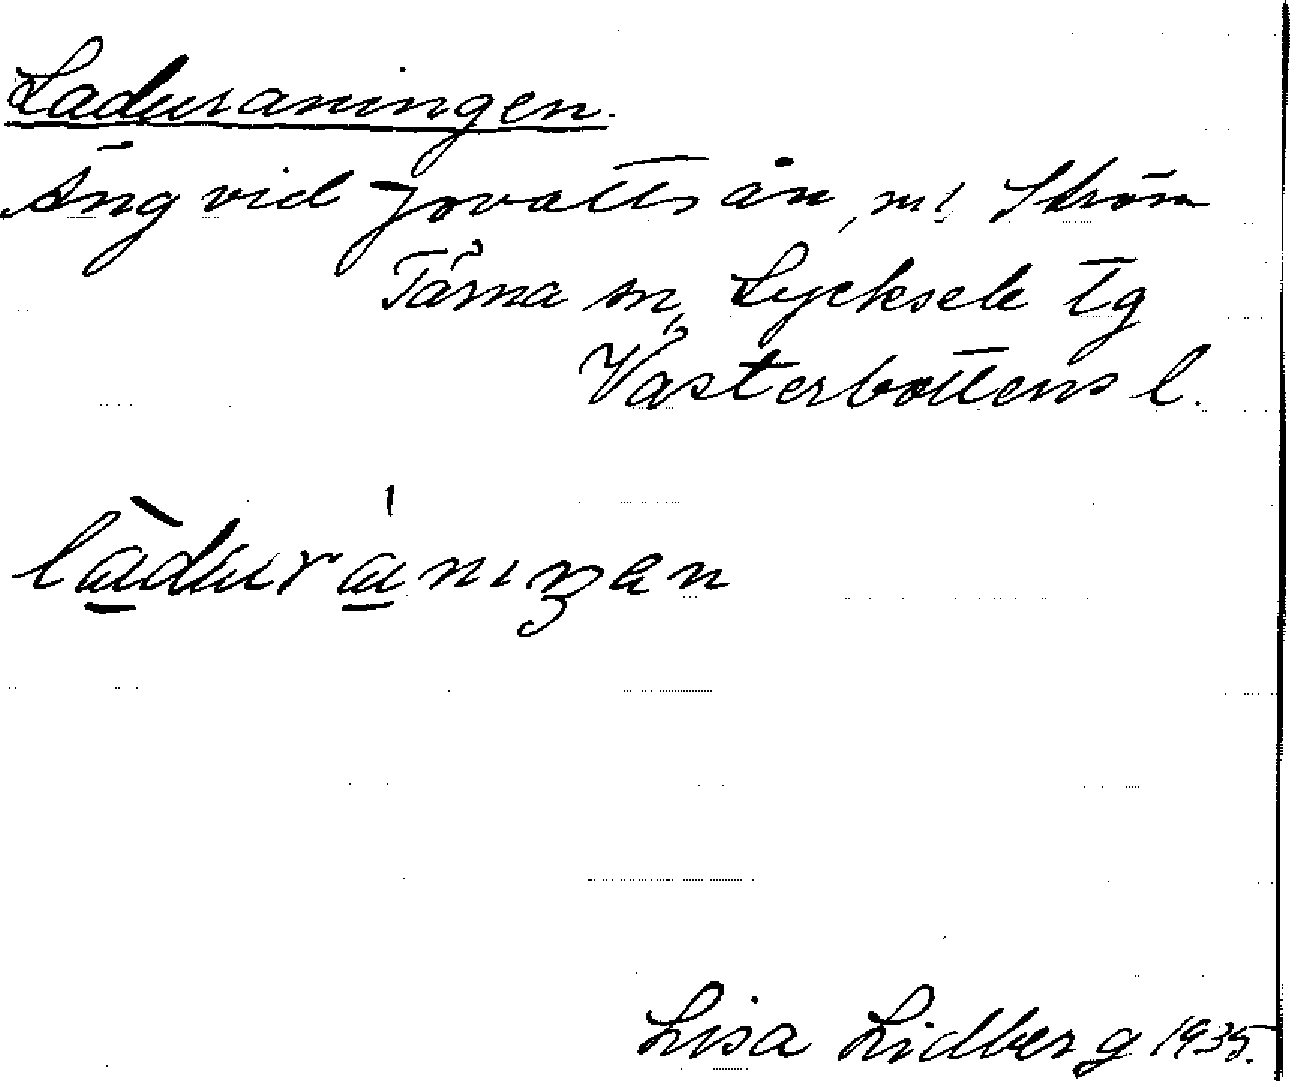 Laduraningen.
Äng vid Jovattsån, m! Ström
Tärna sn, Lycksele tg
Västerbottens l.
làdurániŋan
Lisa Lidberg 1935.